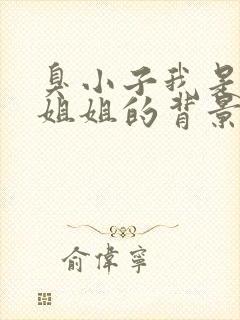 臭小子我是
姐姐的背景
俞偉寧